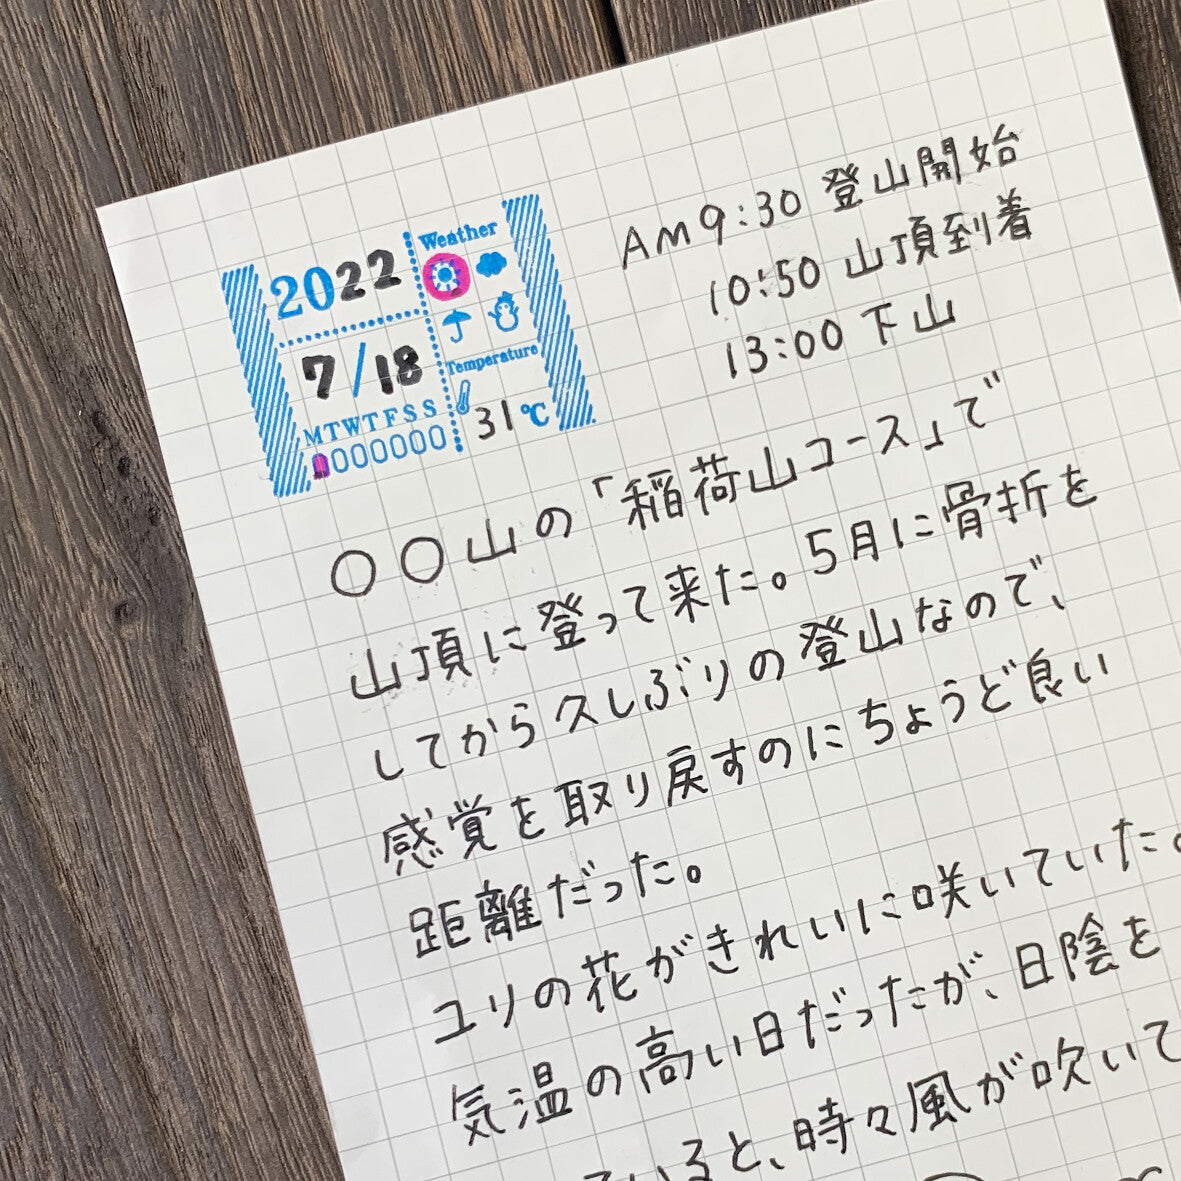 2022
Weather
7/18
Temperature
31℃
MTWTFSS
AM9:30 登山開始
10:50 山頂到着
13:00 下山
〇〇山の「稲荷山コース」で
山頂に登って来た。5月に骨折を
してから久しぶりの登山なので、
感覚を取り戻すのにちょうど良い
距離だった。
ユリの花がきれいに咲いていた。
気温の高い日だったが、日陰を
いると、時々風が吹いて